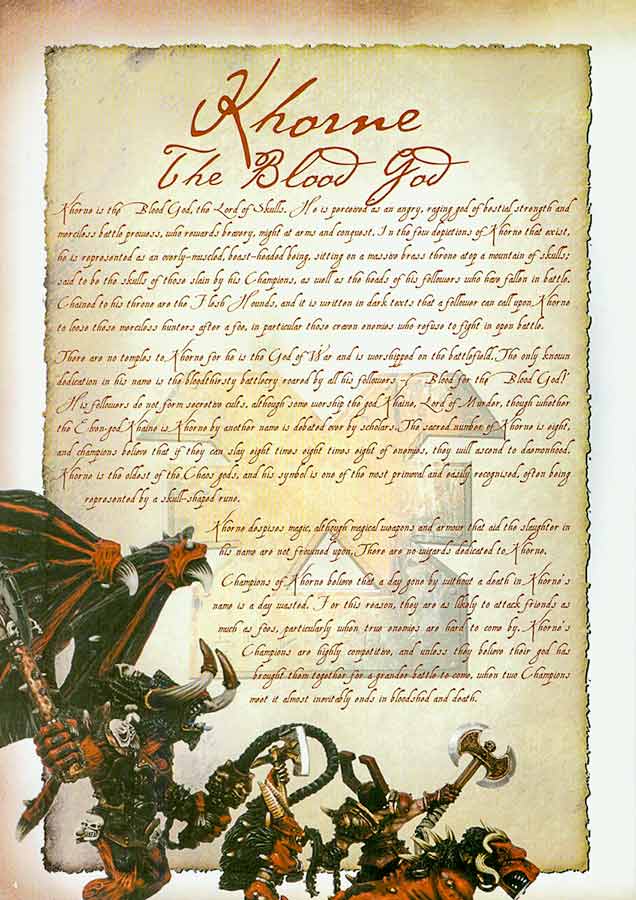 Khorne
The Blood God
Khorne is the Blood God, the Lord of Skulls. He is perceived as an angry, raging god of bestial strength and
merciless battle prowess, who rewards bravery, might at arms and conquest. In the few depictions of Khorne that exist,
he is represented as an overly-muscled, beast-headed being, sitting on a massive brass throne atop a mountain of skulls;
said to be the skulls of those slain by his Champions, as well as the heads of his followers who have fallen in battle.
Chained to his throne are the Flesh Hounds, and it is written in dark texts that a follower can call upon Khorne
to loose these merciless hunters after a foe, in particular those craven enemies who refuse to fight in open battle.
There are no temples to Khorne for he is the God of War and is worshipped on the battlefield. The only known
dedication in his name is the bloodthirsty battlecry roared by all his followers - 'Blood for the Blood God!'
His followers do not form secretive cults, although some worship the god Khaine, Lord of Murder, though whether
the Elven-god Khaine is Khorne by another name is debated over by scholars. The sacred number of Khorne is eight,
and champions believe that if they can slay eight times eight times eight of enemies, they will ascend to daemonhood.
Khorne is the oldest of the Chaos gods, and his symbol is one of the most primeval and easily recognised, often being
represented by a skull-shaped rune.
Khorne despises magic, although magical weapons and armour that aid the slaughter in
his name are not frowned upon. There are no wizards dedicated to Khorne.
Champions of Khorne believe that a day gone by without a death in Khorne's
name is a day wasted. For this reason, they are as likely to attack friends as
much as foes, particularly when true enemies are hard to come by. Khorne's
Champions are highly competitive, and unless they believe their god has
brought them together for a grander battle to come, when two Champions
meet it almost inevitably ends in bloodshed and death.